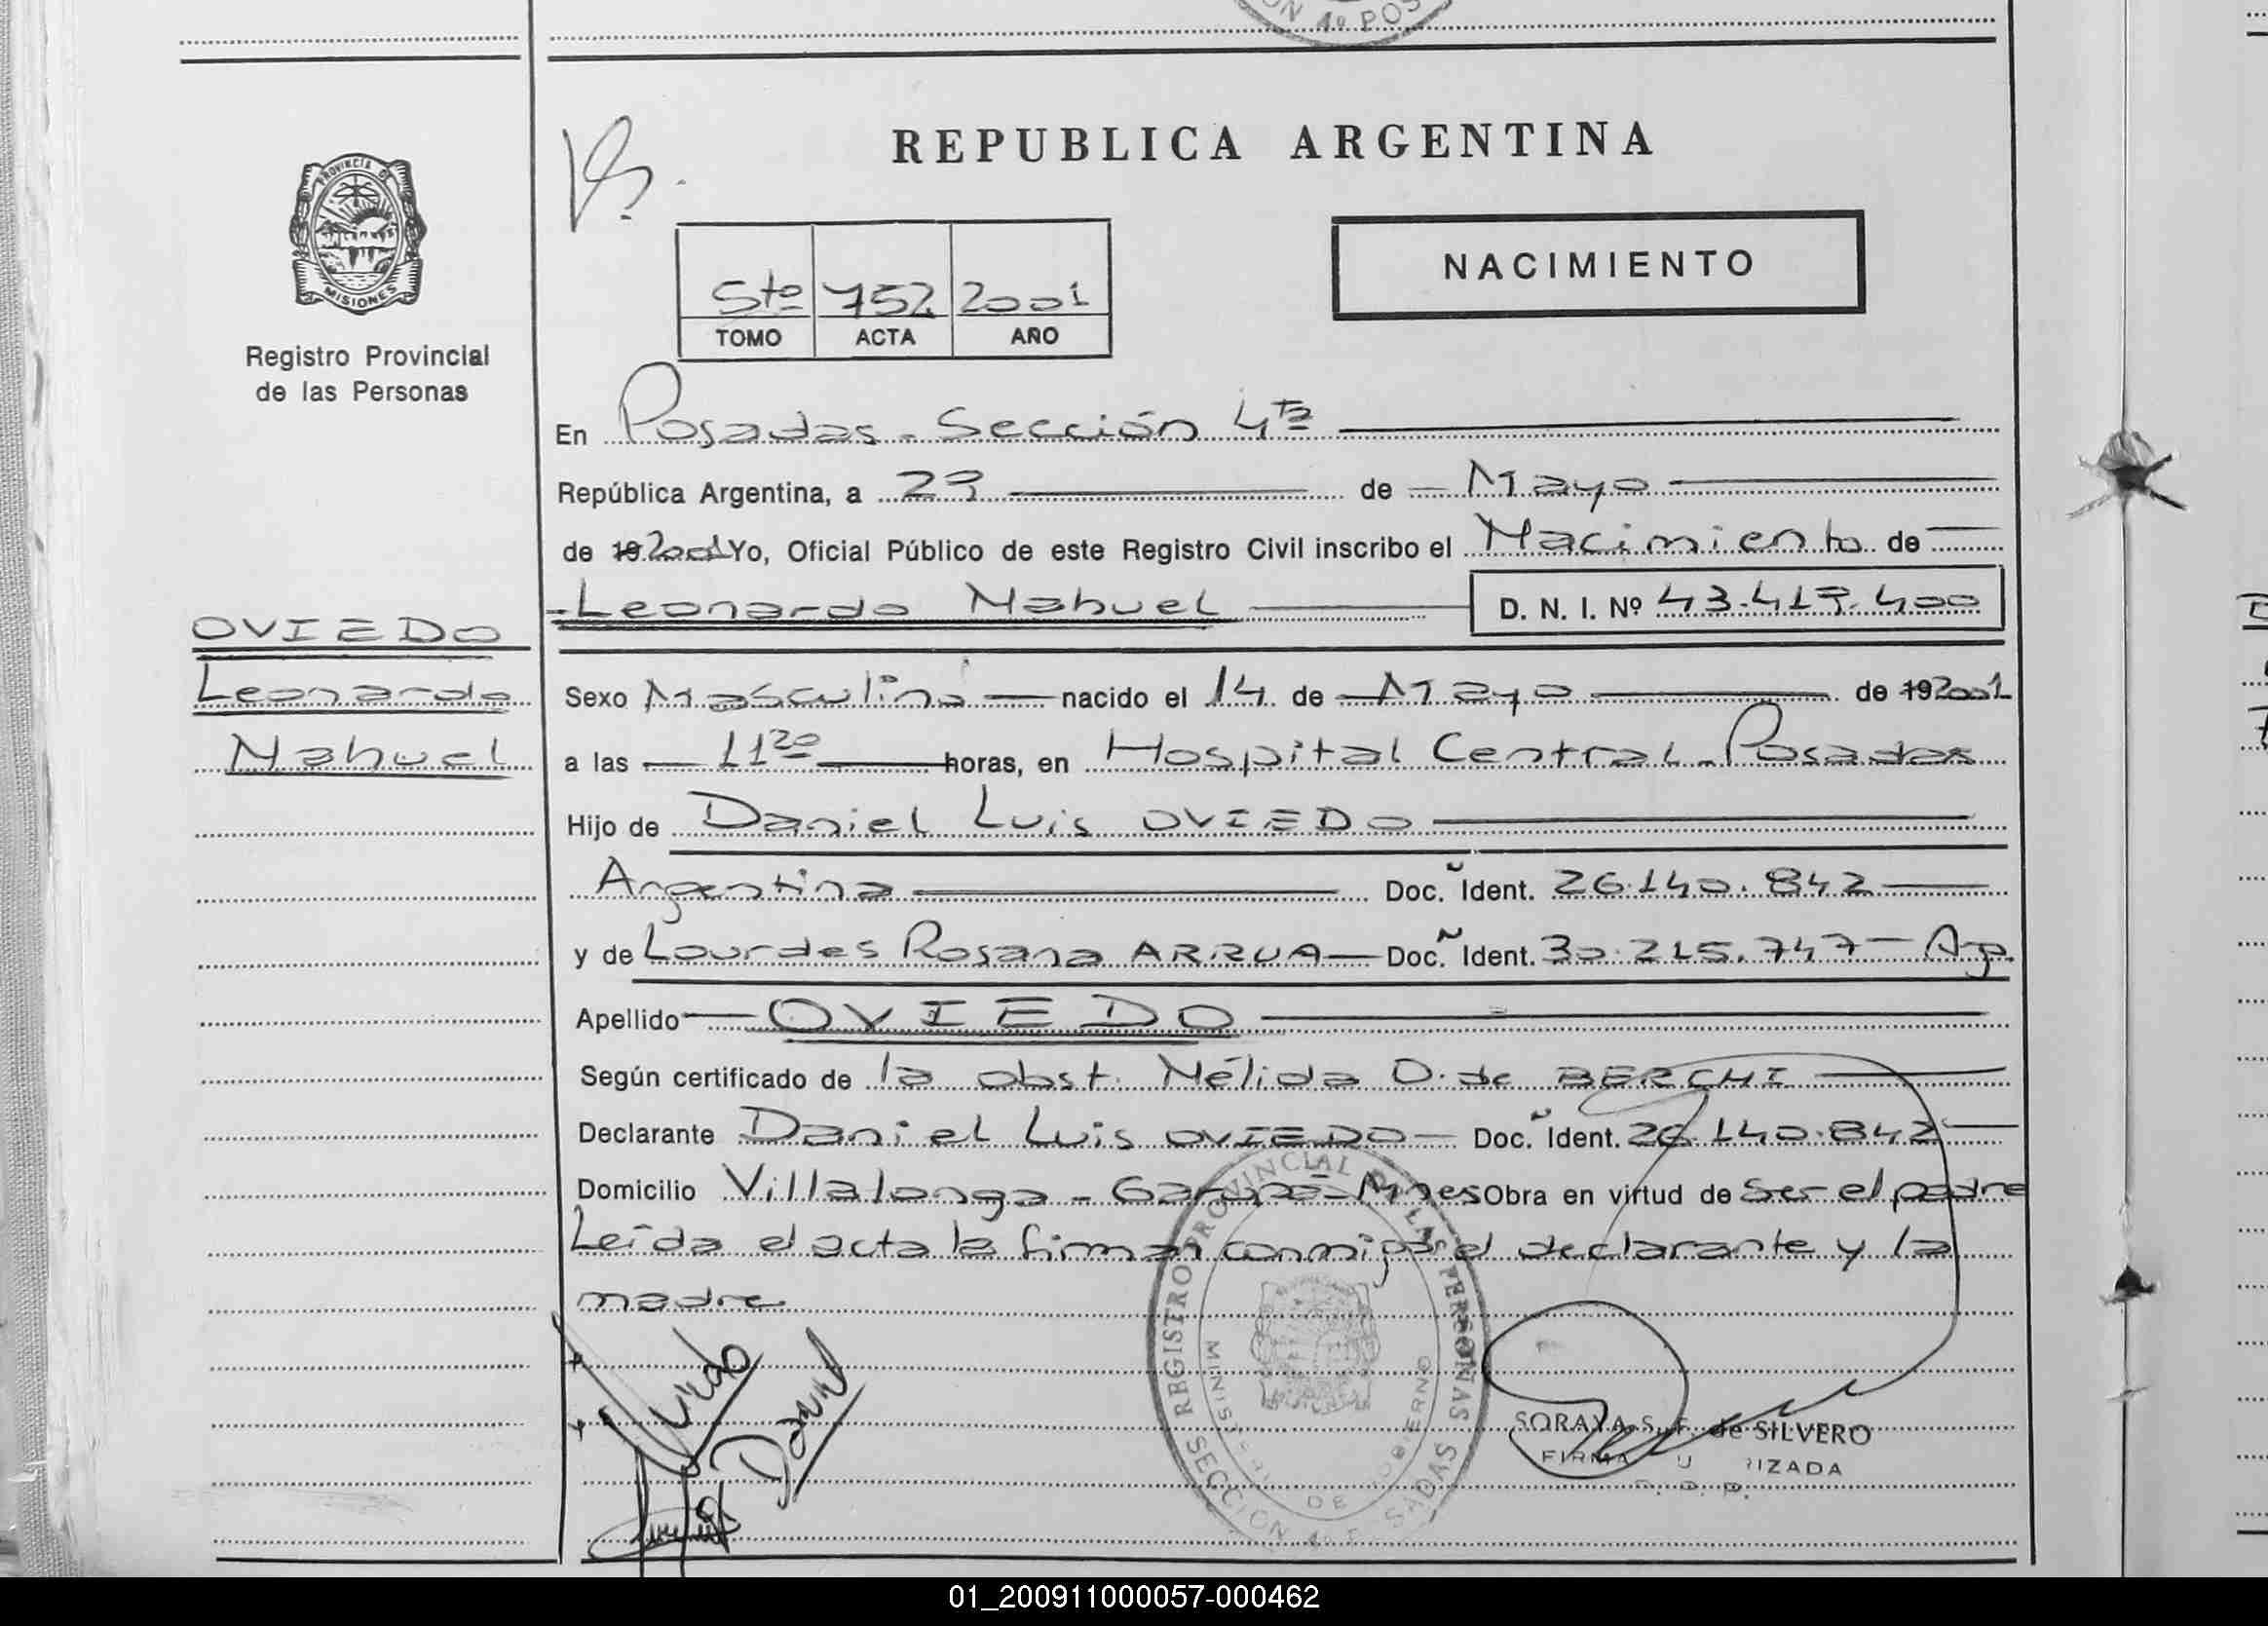 ON 4º POS
REPUBLICA ARGENTINA
PROVINCIA DE
MISIONES
Registro Provincial
de las Personas
NACIMIENTO
5to 752 2001
TOMO ACTA AÑO
En Posadas - Sección 4ta
República Argentina, a 29 de Mayo
de 19 2001 Yo, Oficial Público de este Registro Civil inscribo el Nacimiento de
Leonardo Nahuel D. N. I. Nº 43.419.400
OVIEDO
Leonardo
Nahuel
Sexo Masculino nacido el 14 de Mayo de 19 2001
a las 11 20 horas, en Hospital Central - Posadas
Hijo de Daniel Luis OVIEDO
Argentina Doc. Ident. 26.140.842
y de Lourdes Rosana ARRUA Doc. Ident. 30.215.747 - Ag.
Apellido OVIEDO
Según certificado de la obst. Nélida O. de BERCHI
Declarante Daniel Luis OVIEDO Doc. Ident. 26.140.842
Domicilio Villalonga - Garupá - Mnes Obra en virtud de Ser el padre
Leída el acta la firman conmigo el declarante y la
madre
Oviedo
Daniel
REGISTRO PROVINCIAL DE LAS PERSONAS
SECCION 4º P SADAS
DE GOBIERNO
SORAYA S. F. de SILVERO
01_200911000057-000462